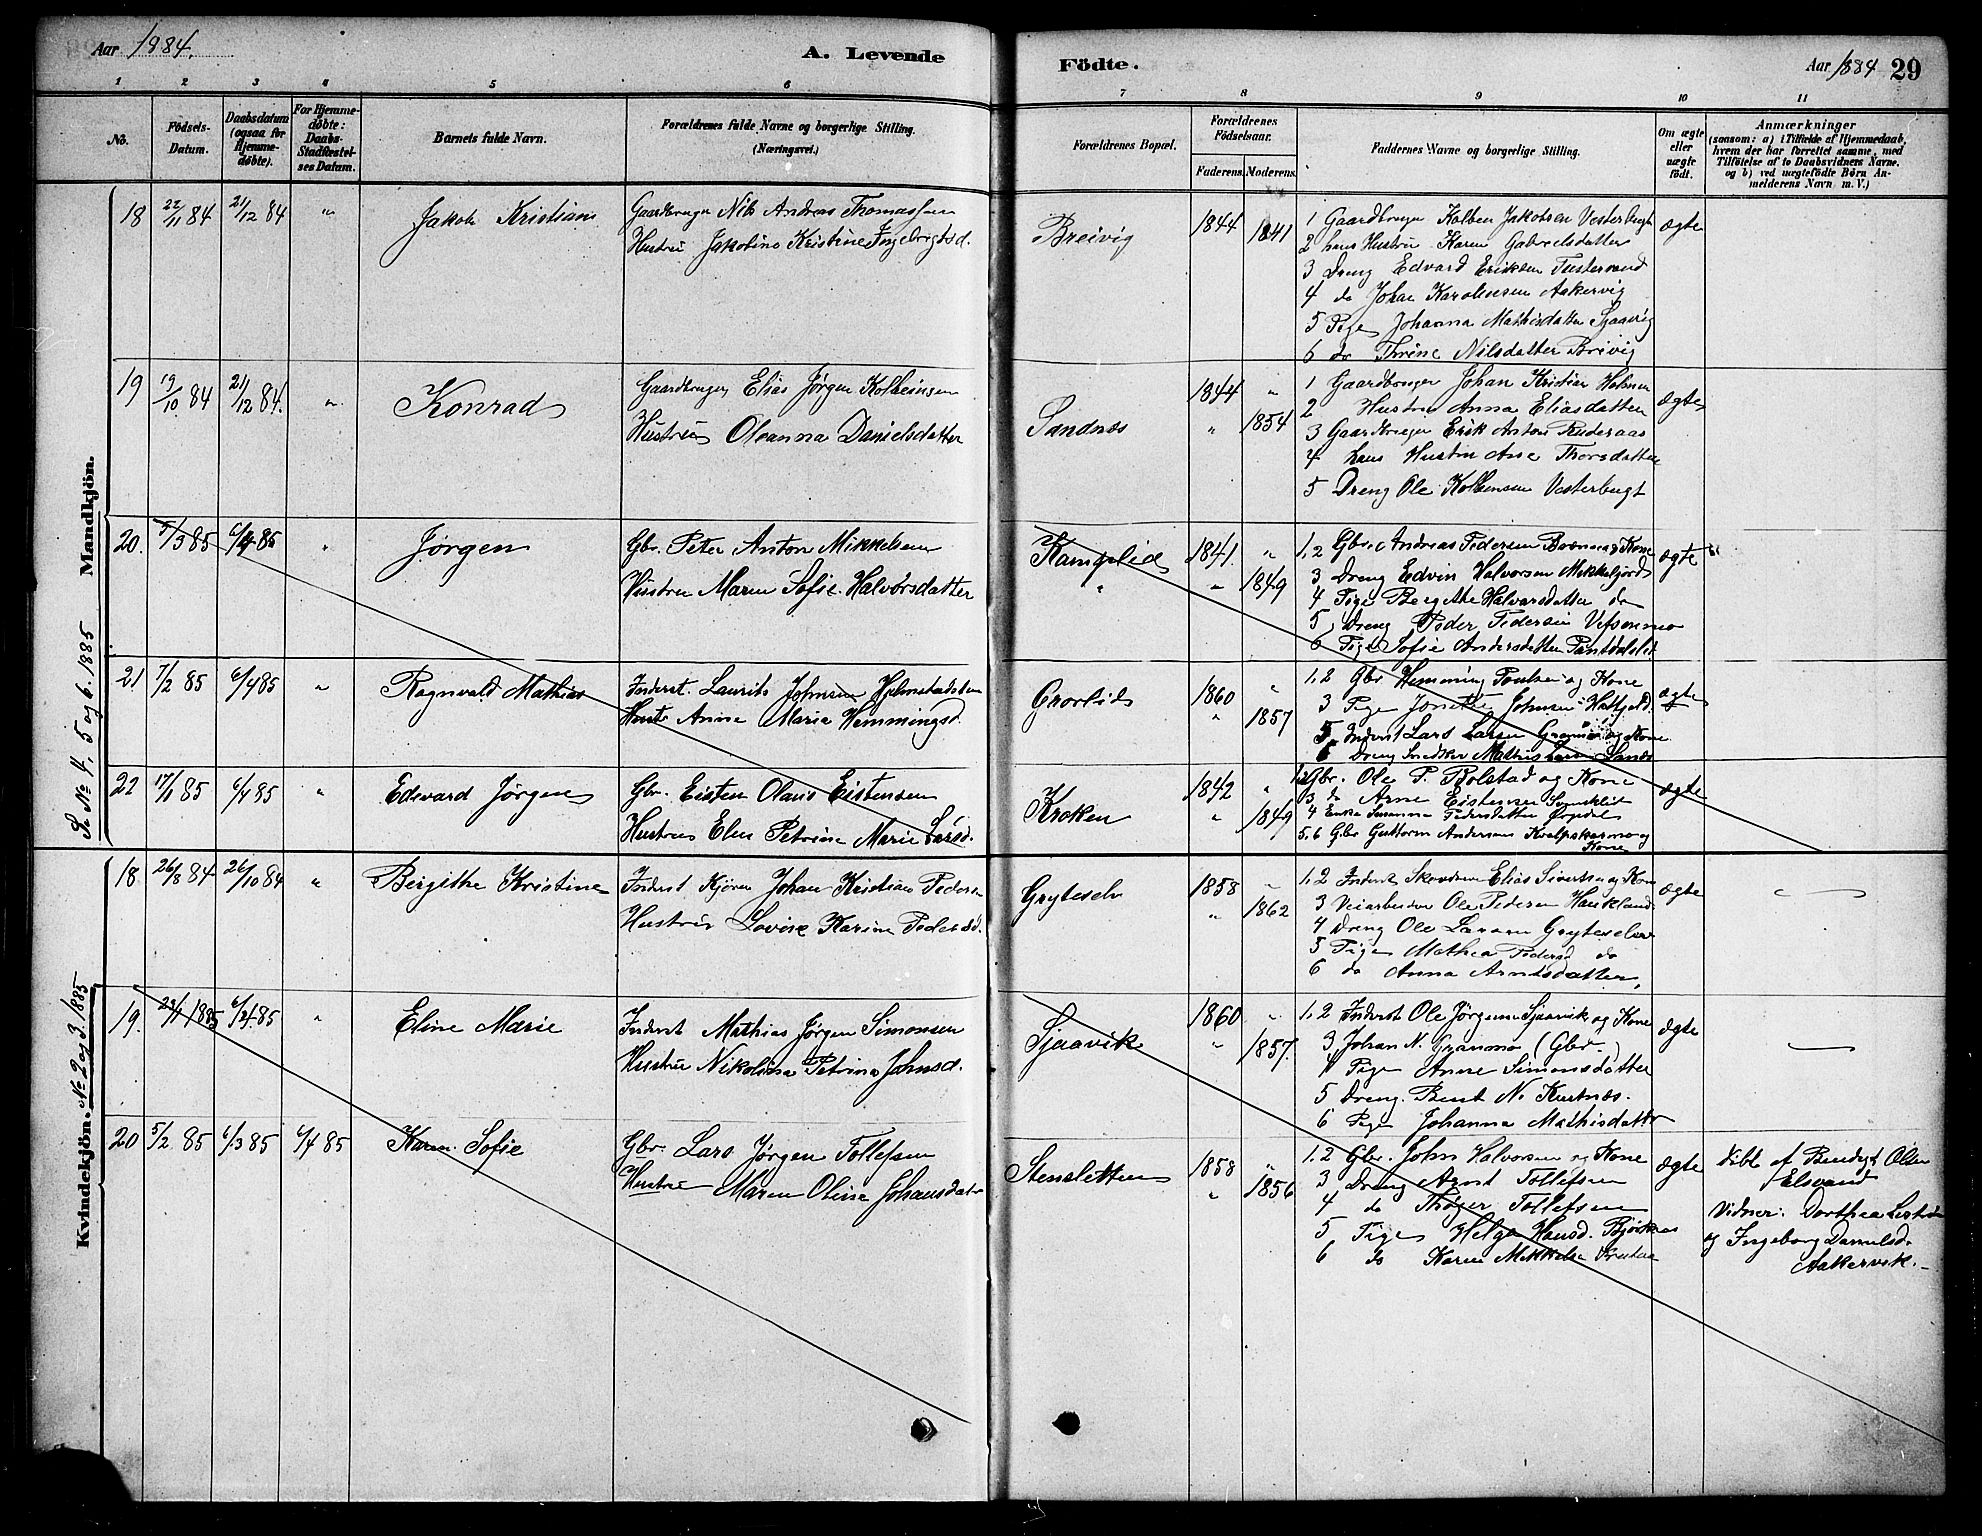 Aar 1884.
A. Levende
Födte.
Aar 1884 29
1 2 3 4 5 6 7 8 9 10 11
No.
Födsels-Datum.
Daabsdatum (ogsaa for Hjemme-døbte).
For Hjemme-døbte: Daabs-Stadfæstel-ses Datum.
Barnets fulde Navn.
Forældrenes fulde Navne og borgerlige Stilling. (Næringsvei.)
Forældrenes Bopæl.
Forældrenes Födselsaar.
Faderens. Moderens.
Faddernes Navne og borgerlige Stilling.
Om ægte eller uægte født.
Anmærkninger (saasom: a) i Tilfælde af Hjemmedaab, hvem der har forrettet samme, med Tilföielse af to Daabsvidners Navne, og b) ved uægtefödte Börn An-melderens Navn m. V.)
Mandkjön.
Se No 4, 5 og 6. 1885
18 22/11 84 21/12 84 " Jakob Kristian
Gaardbruger Nils Andreas Thomassen
Hustru Jakobine Kristine Ingebrigtsd.
Breivig 1844 1841
1 Gaardbruger Kolben Jakobsen Vesterbugt
2 hans Hustru Karen Gabrielsdatter
3 Dreng Edvard Eriksen Tustervand
4 do Johan Karolinesen Aakervig
5 Pige Johanna Mathisdatter Sjaavig
6 do Thrine Nilsdatter Brivig
ægte
19 19/10 84 21/12 84. " Konrad
Gaardbruger Elias Jørgen Kolbeinsen
Hustru Oleanna Danielsdatter
Sandnæs 1844 " " 1854
1 Gaardbruger Johan Kristian Holmen
2 Hustru Anna Eliasdatter
3 Gaardbruger Erik Anton Ruderaas
4 hans Hustru Ane Thorsdatter
5 Dreng Ole Kolbensen Vesterbugt
ægte
20. 5/3 85 6/4 85 " Jørgen
Gbr. Peter Anton Mikkelsen
Hustru Maren Sofie Halvorsdatter
Kamplid 1841. " " 1849
1,2 Gbr. Andreas Pedersen og Kone
3 Dreng Edvin Halvorsen Mikkeljord
4 Pige Beigithe Halvorsdatter do
5 Dreng Peder Pedersen Vefsenmo
6 Pige Sofie Andersdatter Pantdalslid
ægte
21 7/2 85 6/4 85 " Ragnvald Mathias
Inderst. Laurits Johnsen Hjelmstadstu
Hustr Anne Maria Hemmingsd.
Grorlid 1860 " " 1857
1,2 Gbr Hemming Poulsen og Kone
3 Pige Jonette Johnsen Hatfjeld
5 Inderst Lars Larsen Granmo og Kone
6 Dreng Snedker Mathis
ægte
22 17/1 85 6/4 85 " Edvard Jørgen
Gbr. Eisten Olaus Eistensen
Hustru Elen Petrine Marie Larsd.
Kroken 1842 " " 1849
1,2 Gbr. Ole P. Bolstad og Kone
3 do Arne Eistensen
4 Enke Susanna Pedersdatter Ørjedal
5,6 Gbr Guttorm Andersen Kvalpskarmo og Kone
ægte
Kvindekjön.
No 2 og 3. 1885
18 26/8 84 26/10 84 " Beigithe Kristine
Inderst Kjøren Johan Kristian Peders
Hustru Lovise Karine Pedersd.
Gryteselv 1858 " " 1862
1,2 Inderst Skrædder Elias Sivertsen og Kone
3 Veiarbeider Ole Pedersen Haukland
4 Dreng Ole Larsen Gryteselv
5 Pige Mathea Pedersd do
6 do Anna Arntsdatter,
ægte
19. 23/1 1885 6/4 85 " Eline Marie
Inderst Mathias Jørgen Simonsen
Hustru Nikolina Petrina Johnsd.
Sjaavik 1860 " " 1857.
1,2 Inderst Ole Jørgensen Sjaavik og Kone
3 Johan N. Granmo (Gbr.)
4 Pige Anne Simonsdatter
5 Dreng. Bent N. Krutnæs.
6 Pige Johanna Mathisdatter
ægte
20 5/2 85 6/3 85 6/4 85 Karen Sofie
Gbr. Lars Jørgen Tollefsen
Hustru Maren Oline Johansdatr
Stensletten 1858 " " 1856
1,2 Gbr. John Halvorsen og Kone
3 Dreng Arnt Tollefsen
4 do Thøger Tollefsen
5 Pige Helga Hansd. Bjørknæs
6 do Karen Mikkelsd
ægte
Døbt af Bendigt Olsen
Elsvand
Vidner: Dorthea
og Ingeborg Danielsd.
Aakervik.